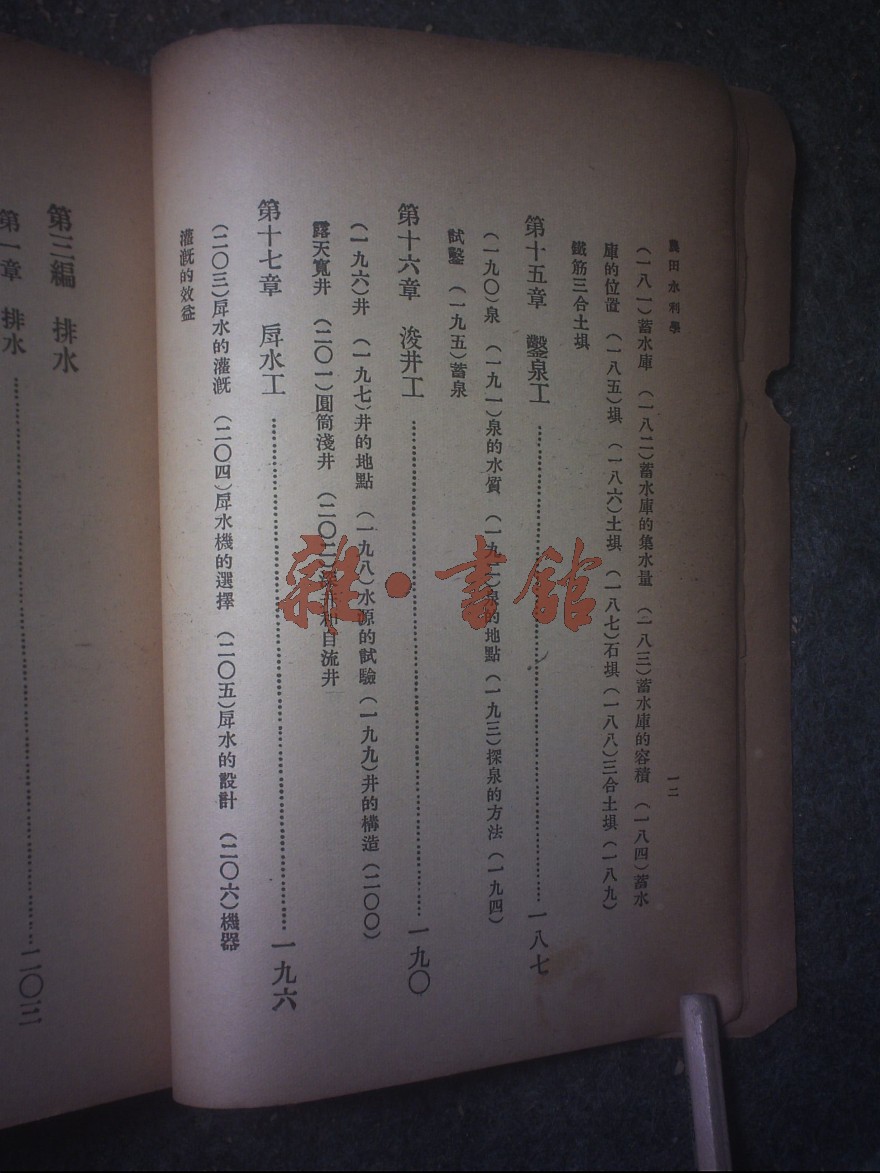 農田水利學
一二
（一八一）蓄水庫　（一八二）蓄水庫的集水量　（一八三）蓄水庫的容積　（一八四）蓄水
庫的位置　（一八五）埧　（一八六）土埧　（一八七）石埧（一八八）三合土埧（一八九）
鐵筋三合土埧
第十五章　鑿泉工………一八七
（一九〇）泉　（一九一）泉的水質　（一九二）泉的地點　（一九三）探泉的方法　（一九四）
試鑿　（一九五）蓄泉
第十六章　浚井工………一九〇
（一九六）井　（一九七）井的地點　（一九八）水源的試驗（一九九）井的構造（二〇〇）
露天寬井　（二〇一）圓筒淺井　（二〇二）深井和自流井
第十七章　戽水工………一九六
（二〇三）戽水的灌溉　（二〇四）戽水機的選擇　（二〇五）戽水的設計　（二〇六）機器
灌溉的效益
第三編　排水
第一章　排水………二〇三
雜·書館